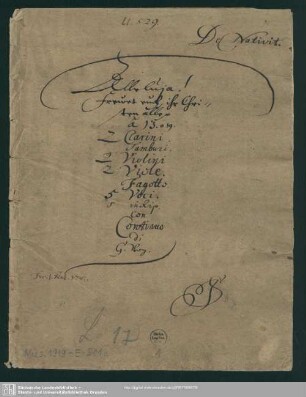 U. 529
De Nativit.
Alleluja!
freuet euch ihr Chri-
sten alle
à 15. o 19.
2 Clarini
Tamburi.
2 Violini
2 Viole.
Fagotto
5 Voci.
5 in Rip
Con
Continuo
di
L. 17
Mus. 1919-E-501
1
Sächsische Landesbibliothek -
Staats- und Universitätsbibliothek Dresden